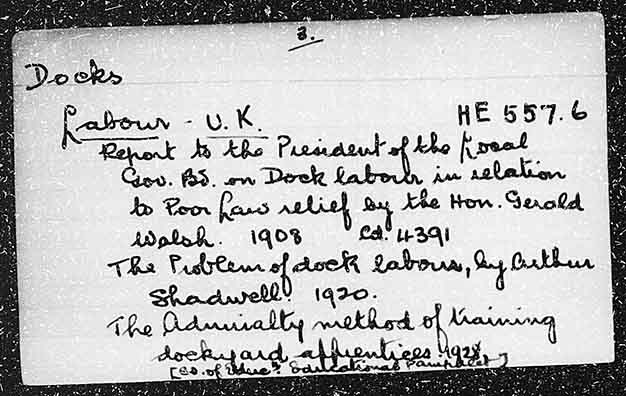 3.
Docks
Labour - U.K. HE 557.6
Report to the President of the Local
Gov. Bd. on Dock labour in relation
to Poor Law relief by the Hon. Gerald
Walsh. 1908 Cd. 4391
The Problem of dock labour, by Arthur
Shadwell. 1920.
The Admiralty method of training
dockyard apprentices. 1928
[Bd. of Educ: Educational Pamphlet]